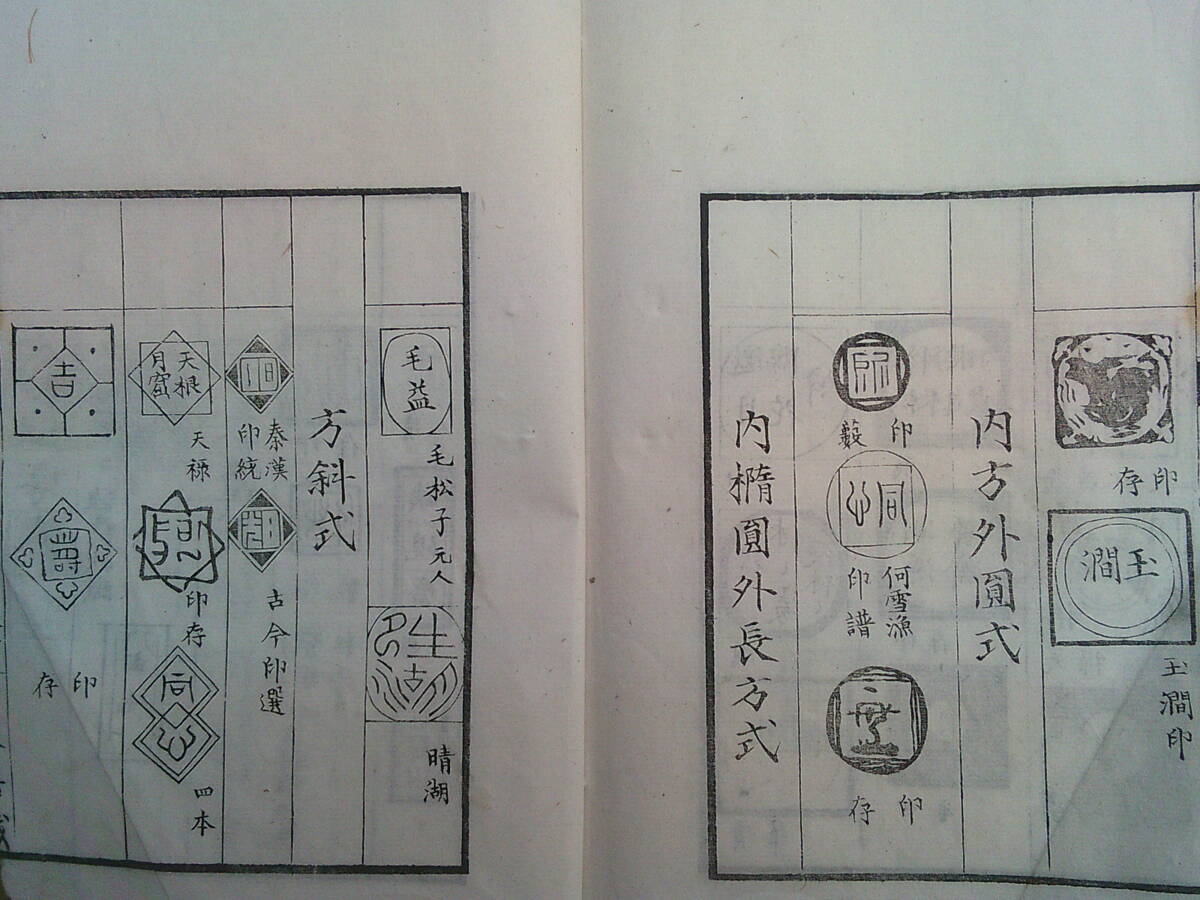 印存
玉澗
玉澗印
内方外圓式
印
印藪
同心
何雪漁
印譜
印存
内橢圓外長方式
毛益
毛松子元人
晴湖
方斜式
秦漢
印統
古今印選
天根
月窟
天禄
印存
同心
四本
吉
壽
印存